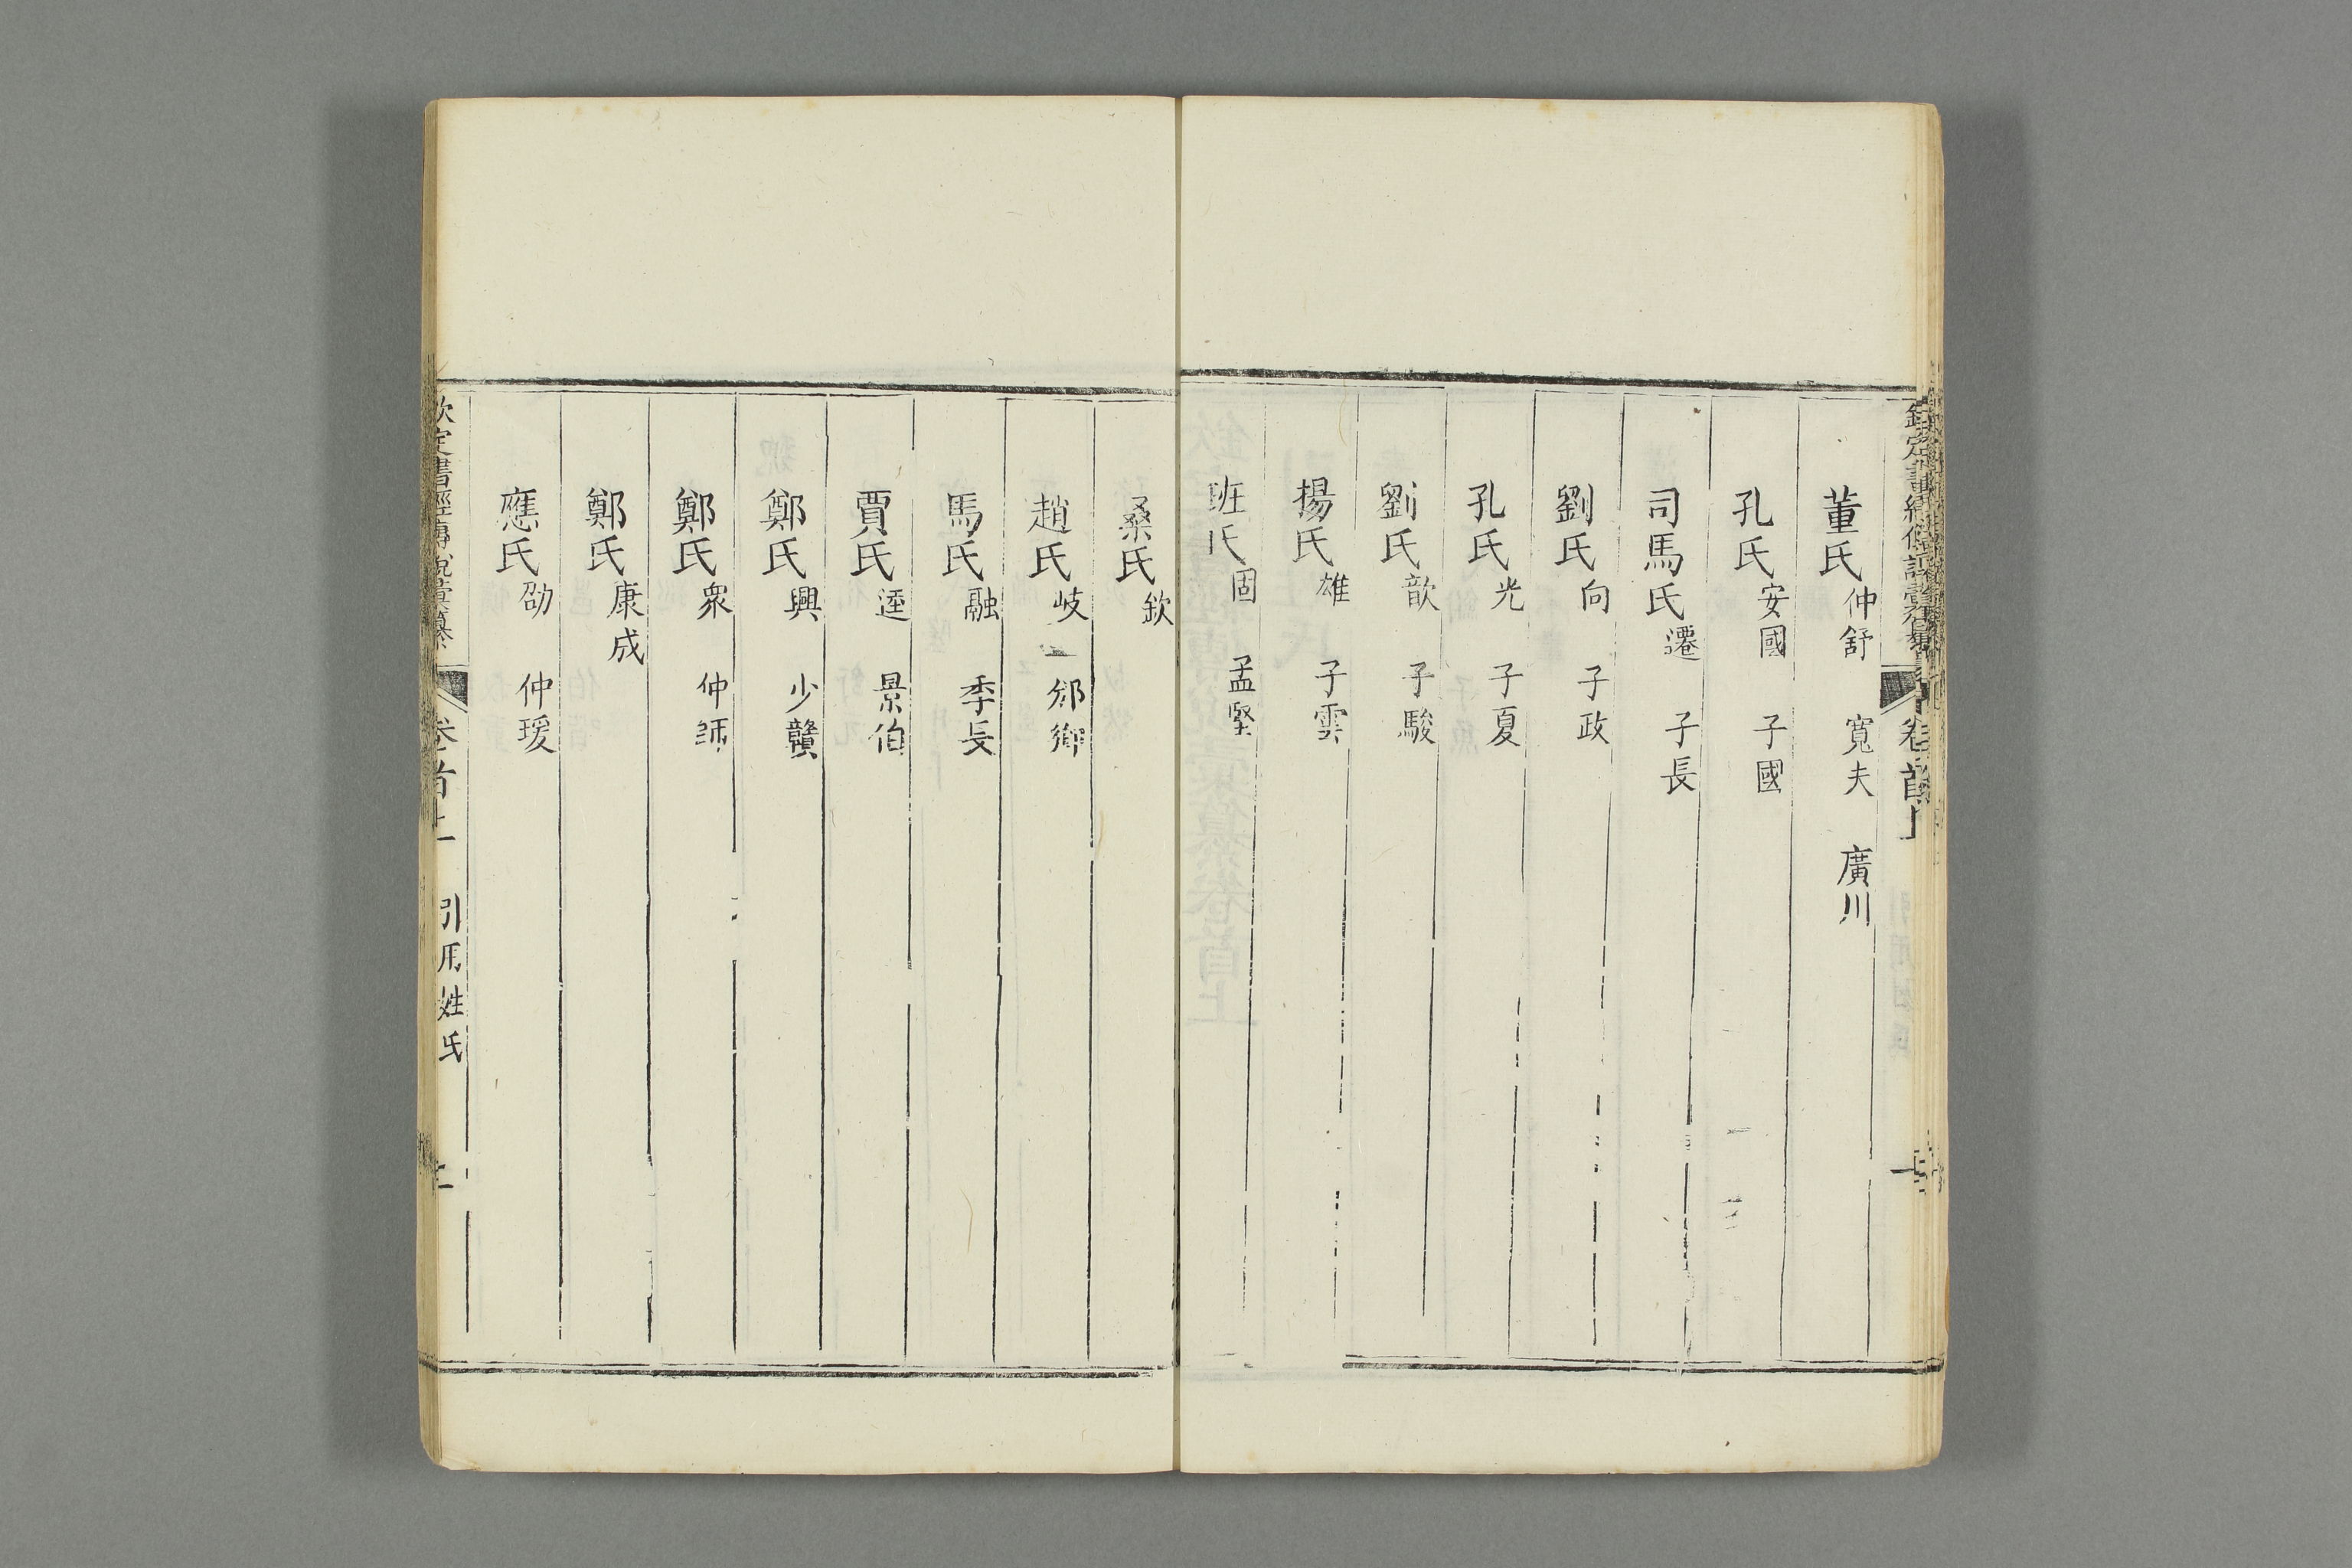 董氏仲舒 寬夫 廣川
孔氏安國 子國
司馬氏遷 子長
劉氏向 子政
孔氏光 子夏
劉氏歆 子駿
揚氏雄 子雲
班氏固 孟堅
桑氏欽
趙氏岐 邠卿
馬氏融 季長
賈氏逵 景伯
鄭氏興 少贛
鄭氏衆 仲師
鄭氏康成
應氏劭 仲瑗
欽定書經傳說彙纂 卷首上 引用姓氏